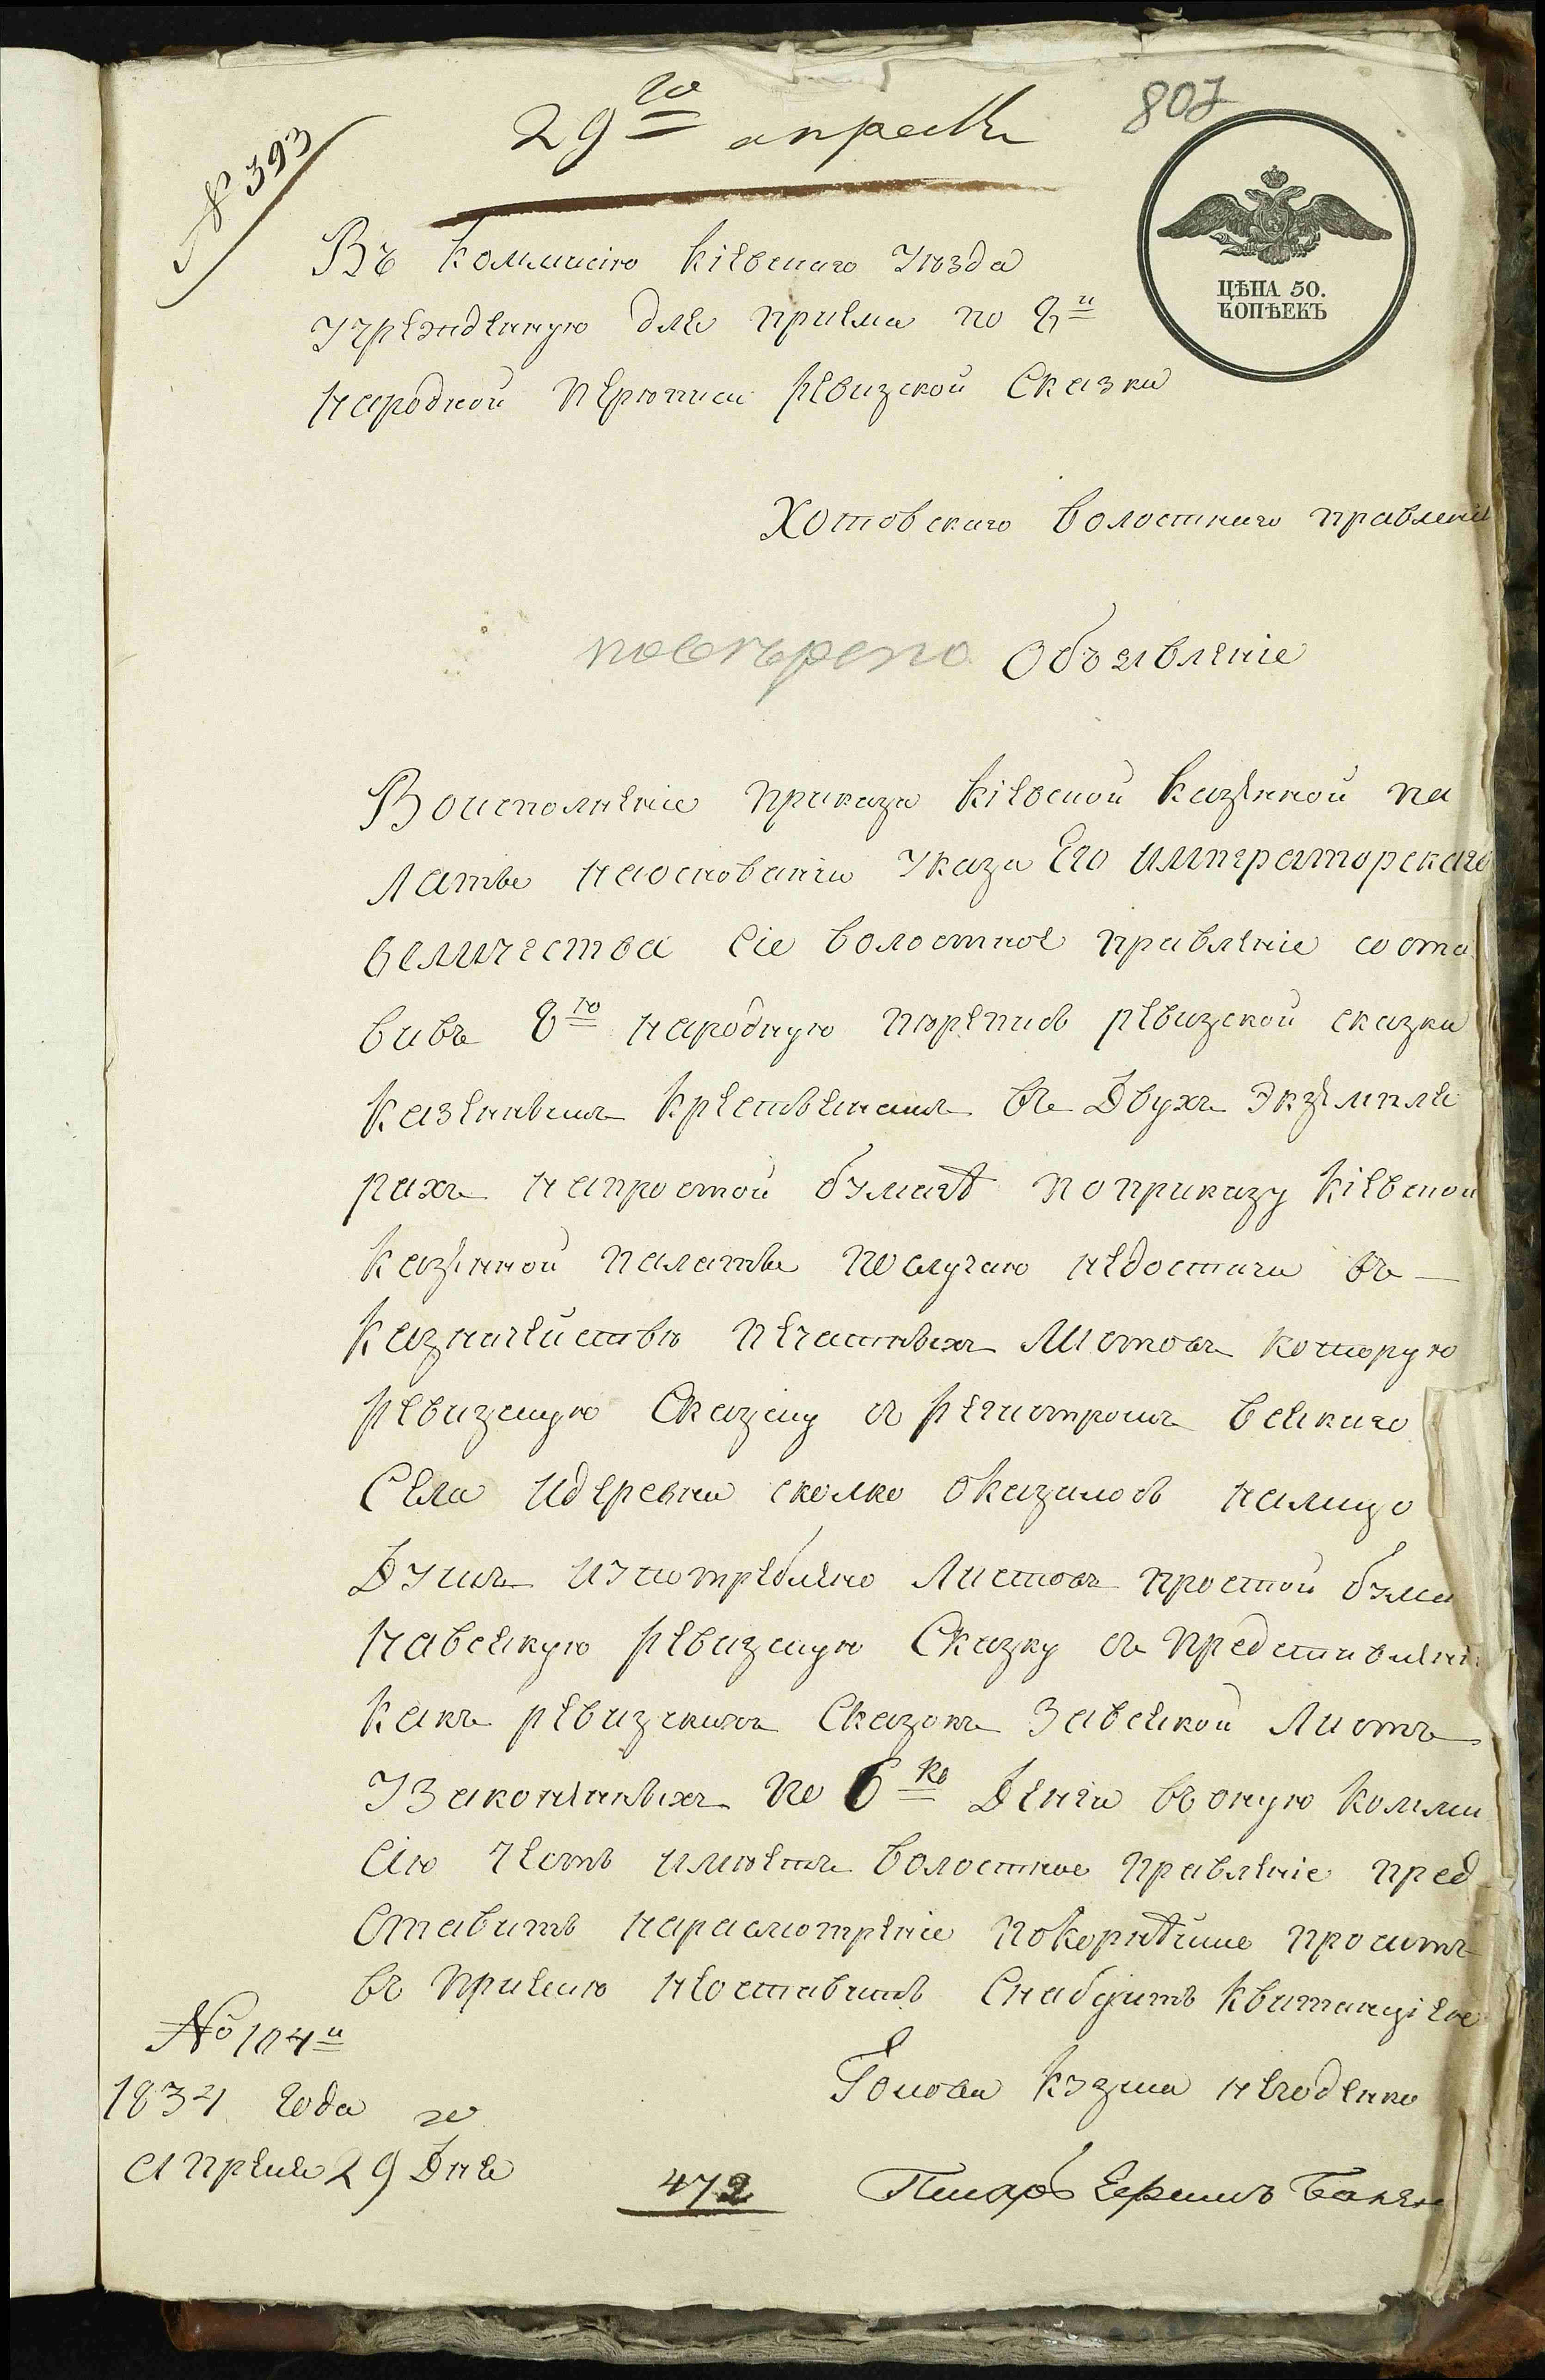 807
№ 393
29го апреля
ЦѢНА 50.
КОПѢЕКЪ
Въ Коммисію Кіевскаго Уюзда
учрежденную для приема по 8й
народной перюписи Ревизской Сказки
Хотовскаго Волостнаго правления
Объявленіе
Воисполненіе приказа Кіевской Казенной па
латы наоснованіи Указа Его Императорскаго
величества сіе волостное правленіе соста
вивъ 8ю народную пюрепись ревизской сказки
Казеннымъ Крестьянамъ въ Двухъ Экземпля
рахъ напростой бумагѣ поприказу Кіевской
Казенной палаты послучаю недостачи въ
Казначействю печатныхъ Листовъ которую
Ревизскую Сказку съ Регистромъ всякаго
Села идеревни сколко оказалось налицо
Душъ изпотреблено Листовъ простой бума
навсякую Ревизскую Сказку съ представлені
какъ ревизскихъ Сказокъ Завсякой Листъ
Узаконенныхъ по 6ко Денги въоную Комми
сію Честь имюетъ Волостное правленіе пред
ставить наразсмотреніе покорнѣйше проситъ
въ приемю неоставить Снабдить Квитанціею
№ 104й
1834 года
апреля 29го Дня
Голова Кузма Негоденко
472
Писарь Ефимъ